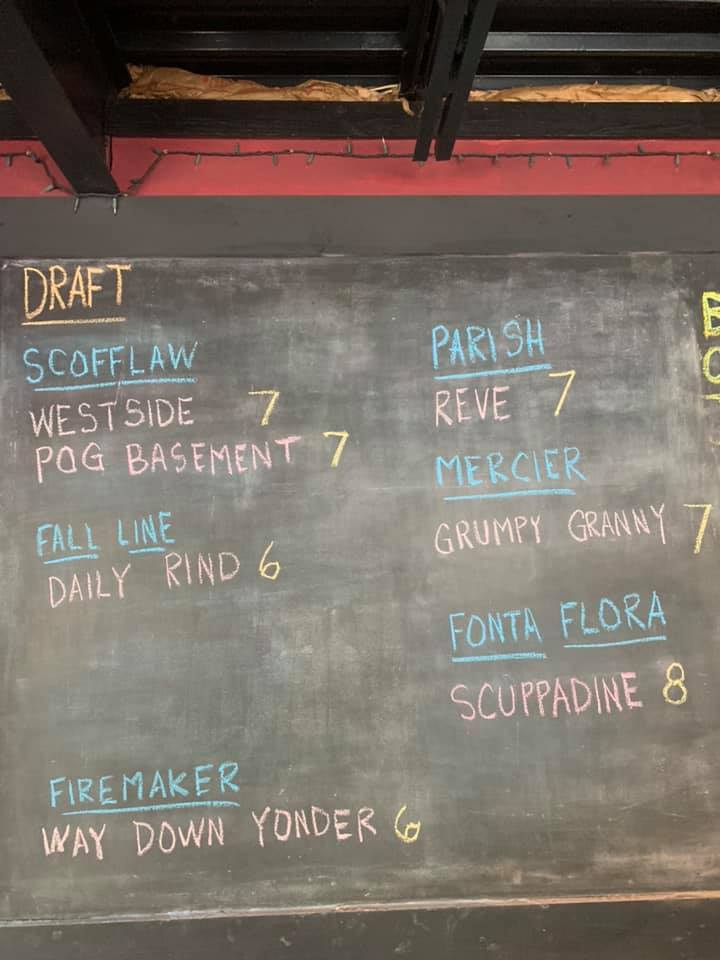 DRAFT
SCOFFLAW
WESTSIDE 7
POG BASEMENT 7
FALL LINE
DAILY RIND 6
FIREMAKER
WAY DOWN YONDER 6
PARISH
REVE 7
MERCIER
GRUMPY GRANNY 7
FONTA FLORA
SCUPPADINE 8